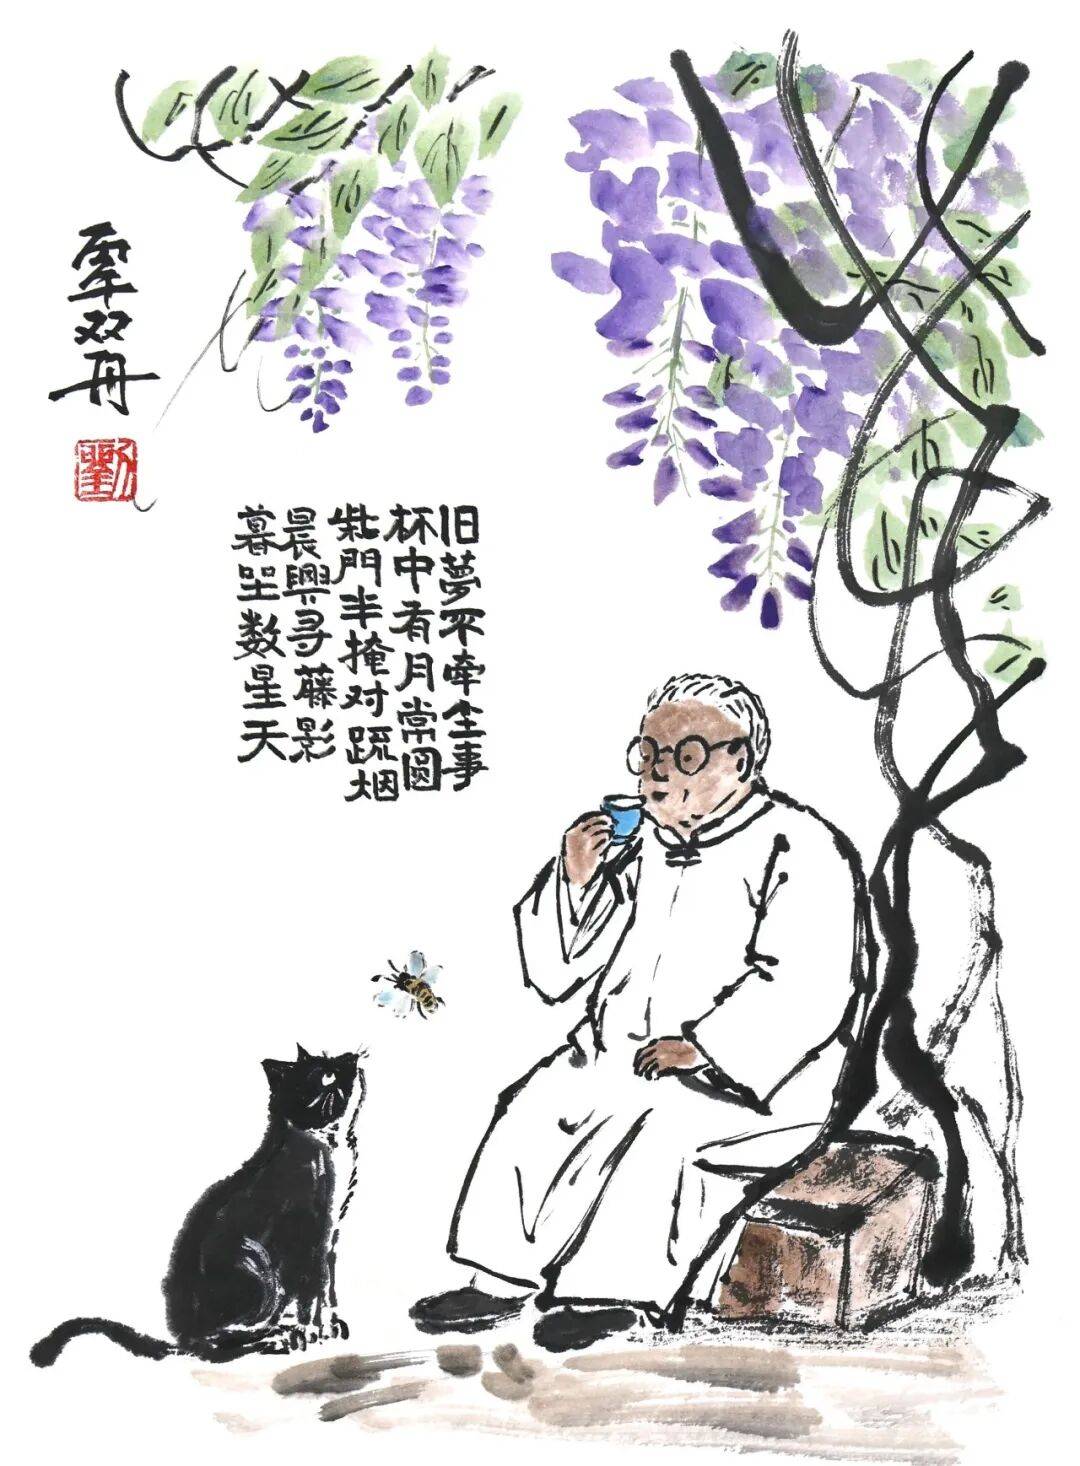 旧夢不牵尘事
杯中有月常圓
柴門半掩对疏烟
晨興寻藤影
暮坐数星天
双舟
劉